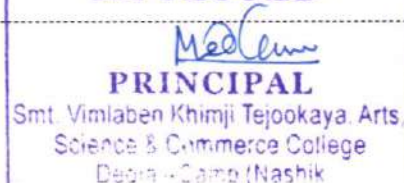 PRINCIPAL
Smt. Vimlaben Khimji Tejookaya. Arts,
Science & Commerce College
Camp (Nashik